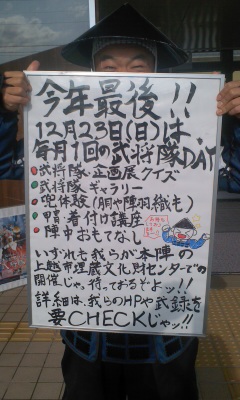 今年最後!!
12月23日(日)は、
毎月1回の武将隊DAY
武将隊企画展クイズ
武将隊ギャラリー
兜体験(胴や陣羽織も)
甲冑着付け講座
陣中おもてなし
いずれも我らが本陣の
上越市埋蔵文化財センターでの
開催じゃ。待っておるぞよッ!!
詳細は、我らのHPや武録を
要CHECKじゃッ!!